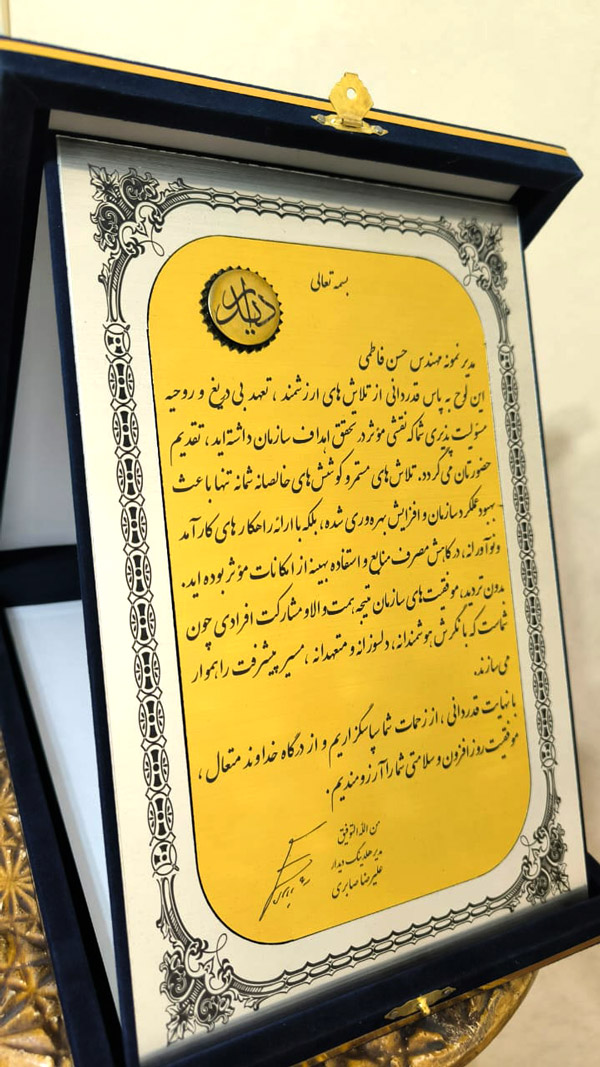 بسمه تعالی
دیدار
مدیر نمونه مهندس حسن فاطمی
این لوح به پاس قدردانی از تلاش های ارزشمند ، تعهد بی دریغ و روحیه
مسئولیت پذیری شما که نقشی مؤثر در تحقق اهداف سازمان داشته اید ، تقدیم
حضورتان می گردد. تلاش های مستمر و کوشش های خالصانه شما نه تنها باعث
بهبود عملکرد سازمان و افزایش بهره وری شده ، بلکه با ارائه راهکار های کارآمد
و نوآورانه ، در کاهش مصرف منابع و استفاده بهینه از امکانات مؤثر بوده اید.
بدون تردید، موفقیت های سازمان نتیجه همت والا و مشارکت افرادی چون
شماست که با نگرش هوشمندانه ، دلسوزانه و متعهدانه ، مسیر پیشرفت را هموار
می سازند.
با نهایت قدردانی ، از زحمات شما سپاسگزاریم و از درگاه خداوند متعال ،
موفقیت روزافزون و سلامتی شما را آرزومندیم .
من الله التوفیق
مدیر هلدینگ دیدار
علیرضا صابری